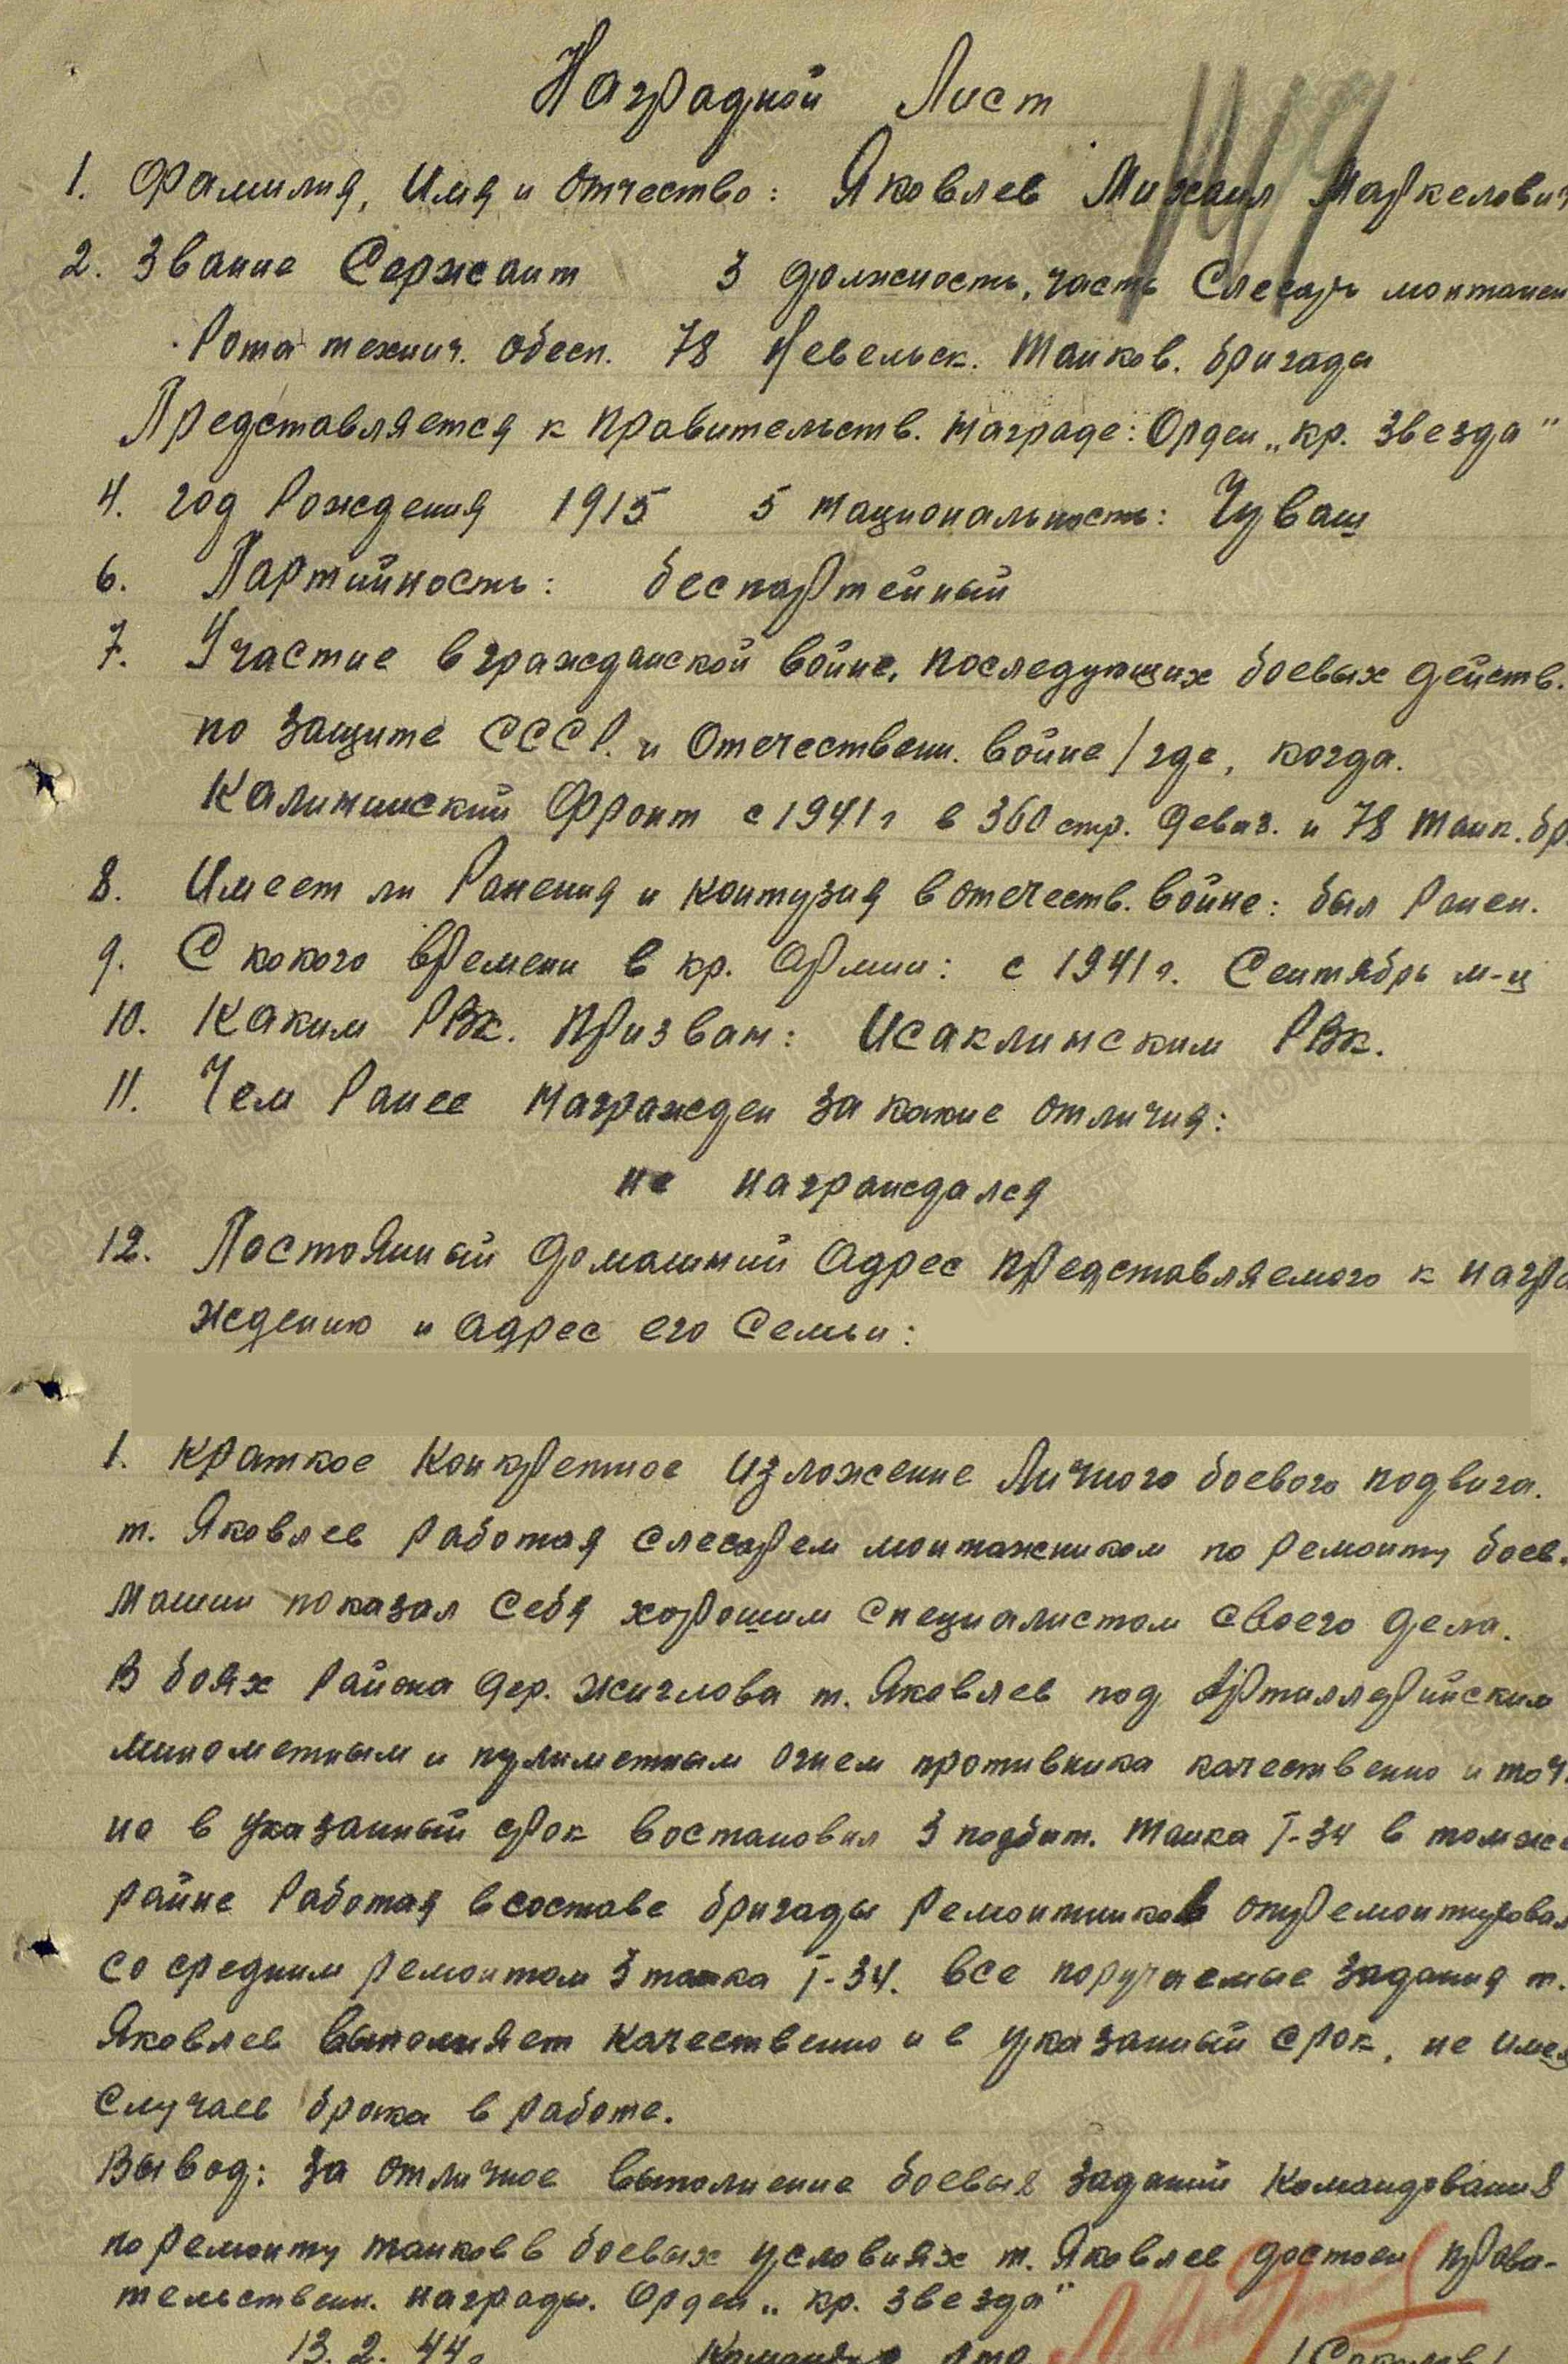 Наградной Лист
1. Фамилия, Имя и Отчество: Яковлев Михаил Маркелович
2. Звание Сержант 3 должность, часть Слесарь монтажн
Рота технич. обесп. 78 Невельск. танков. бригады
Представляется к правительств. награде: Орден „кр. Звезда"
4. год Рождения 1915 5 национальность: Чуваш
6. Партийность: беспартейный
7. Участие в гражданской войне, последующих боевых действ.
по защите СССР. и Отечественн. войне / где, когда.
Калининский Фронт с 1941 г в 360 стр. девиз. и 78 танк. бр.
8. Имеет ли Ранения и контузия в отечеств. войне: был Ранен.
9. С кокого времени в кр. Армии: с 1941 г. Сентябрь м-ц
10. Каким РВк. призван: Исаклинским РВк.
11. Чем Ранее награжден за какие отличия:
не награждался
12. Постоянный домашний Адрес представляемого к награ
ждению и адрес его Семьи:
1. Краткое Конкретное изложение Личного боевого подвига.
т. Яковлев Работая слесарем монтажником по Ремонту боев.
машин показал себя хорошим специалистом своего дела.
В боях Района дер. Жиглова т. Яковлев под Артиллерийским
минометным и пулиметным огнем противника качественно и точ.
но в указанный срок востановил 3 подбит. танка Т-34 в томже
райне Работая в составе бригады Ремонтников отремонтировал
со средним ремонтом 3 танка Т-34. Все поручаемые задания т.
Яковлев выполняет качественно и в указанный срок, не имея
Случаев брака в работе.
Вывод: За отличное выполнение боевых заданий Командования
по Ремонту танков в боевых условиях т. Яковлев достоен прави-
тельственн. награды. Орден „кр. звезда"
13. 2. 44г Командир рто /Соколов/